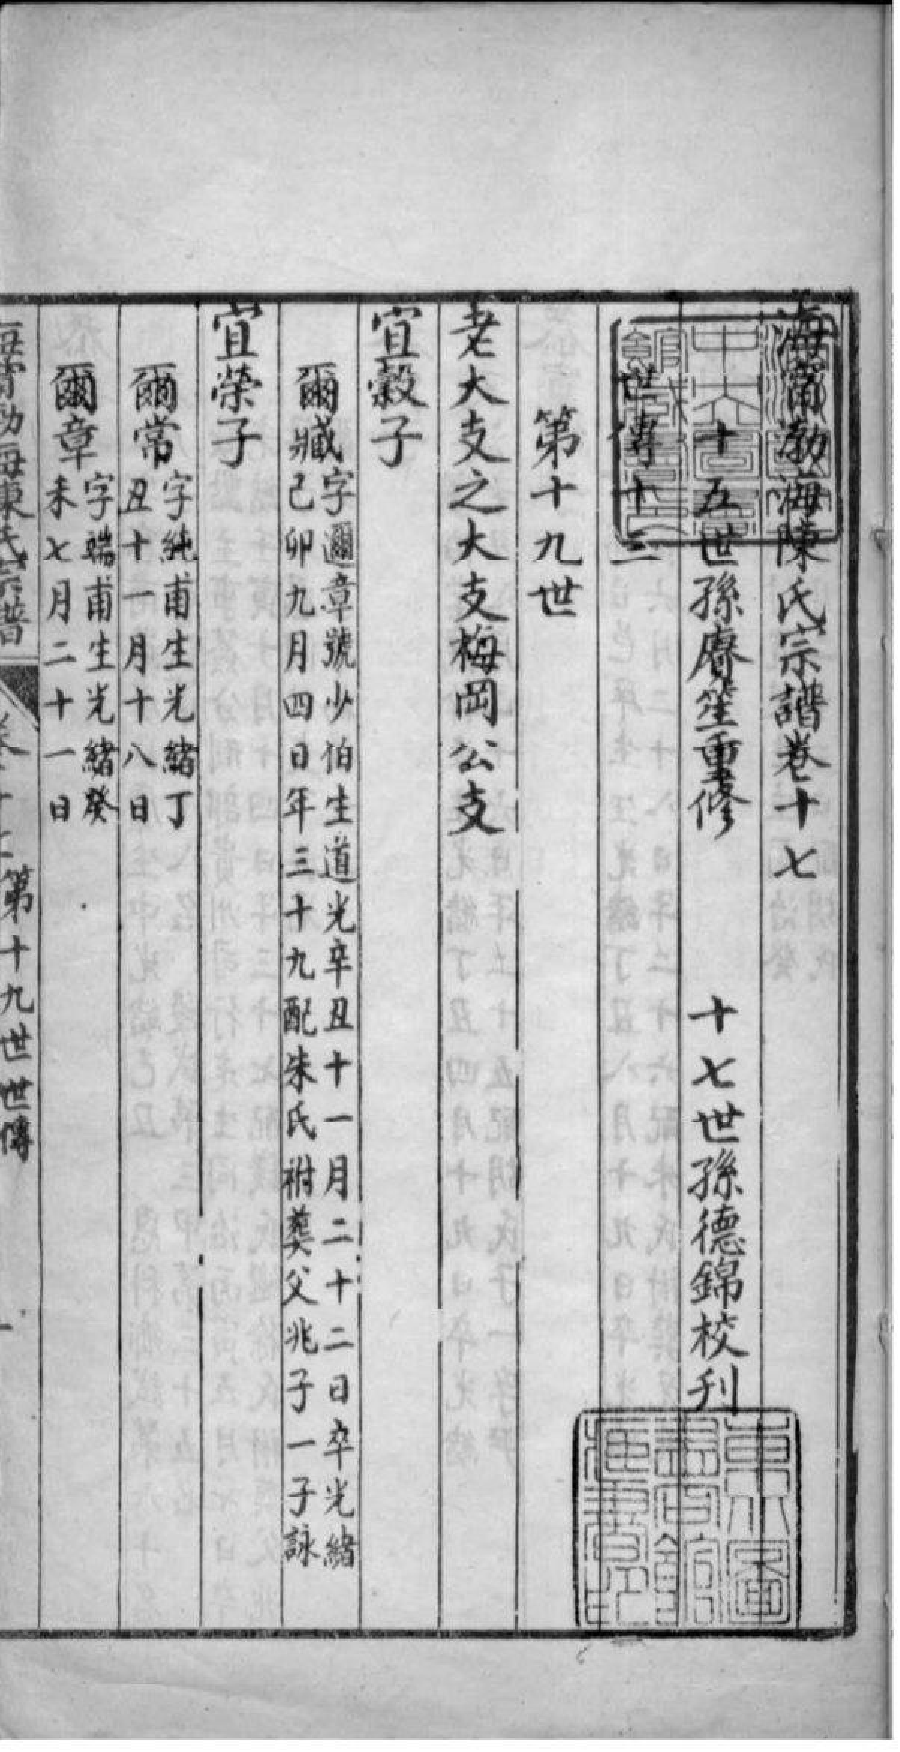 海甯渤海陳氏宗譜卷十七
十五世孫賡笙重修　十七世孫德錦校刋
世傳十三
第十九世
老大支之大支梅岡公支
宜穀子
爾臧
字邇章號少伯生道光辛丑十一月二十二日卒光緒
己卯九月四日年三十九配朱氏祔葬父兆子一子詠
宜榮子
爾常
字純甫生光緒丁
丑十一月十八日
爾章
字端甫生光緒癸
未七月二十一日
海甯渤海陳氏宗譜　卷十七　第十九世世傳　一